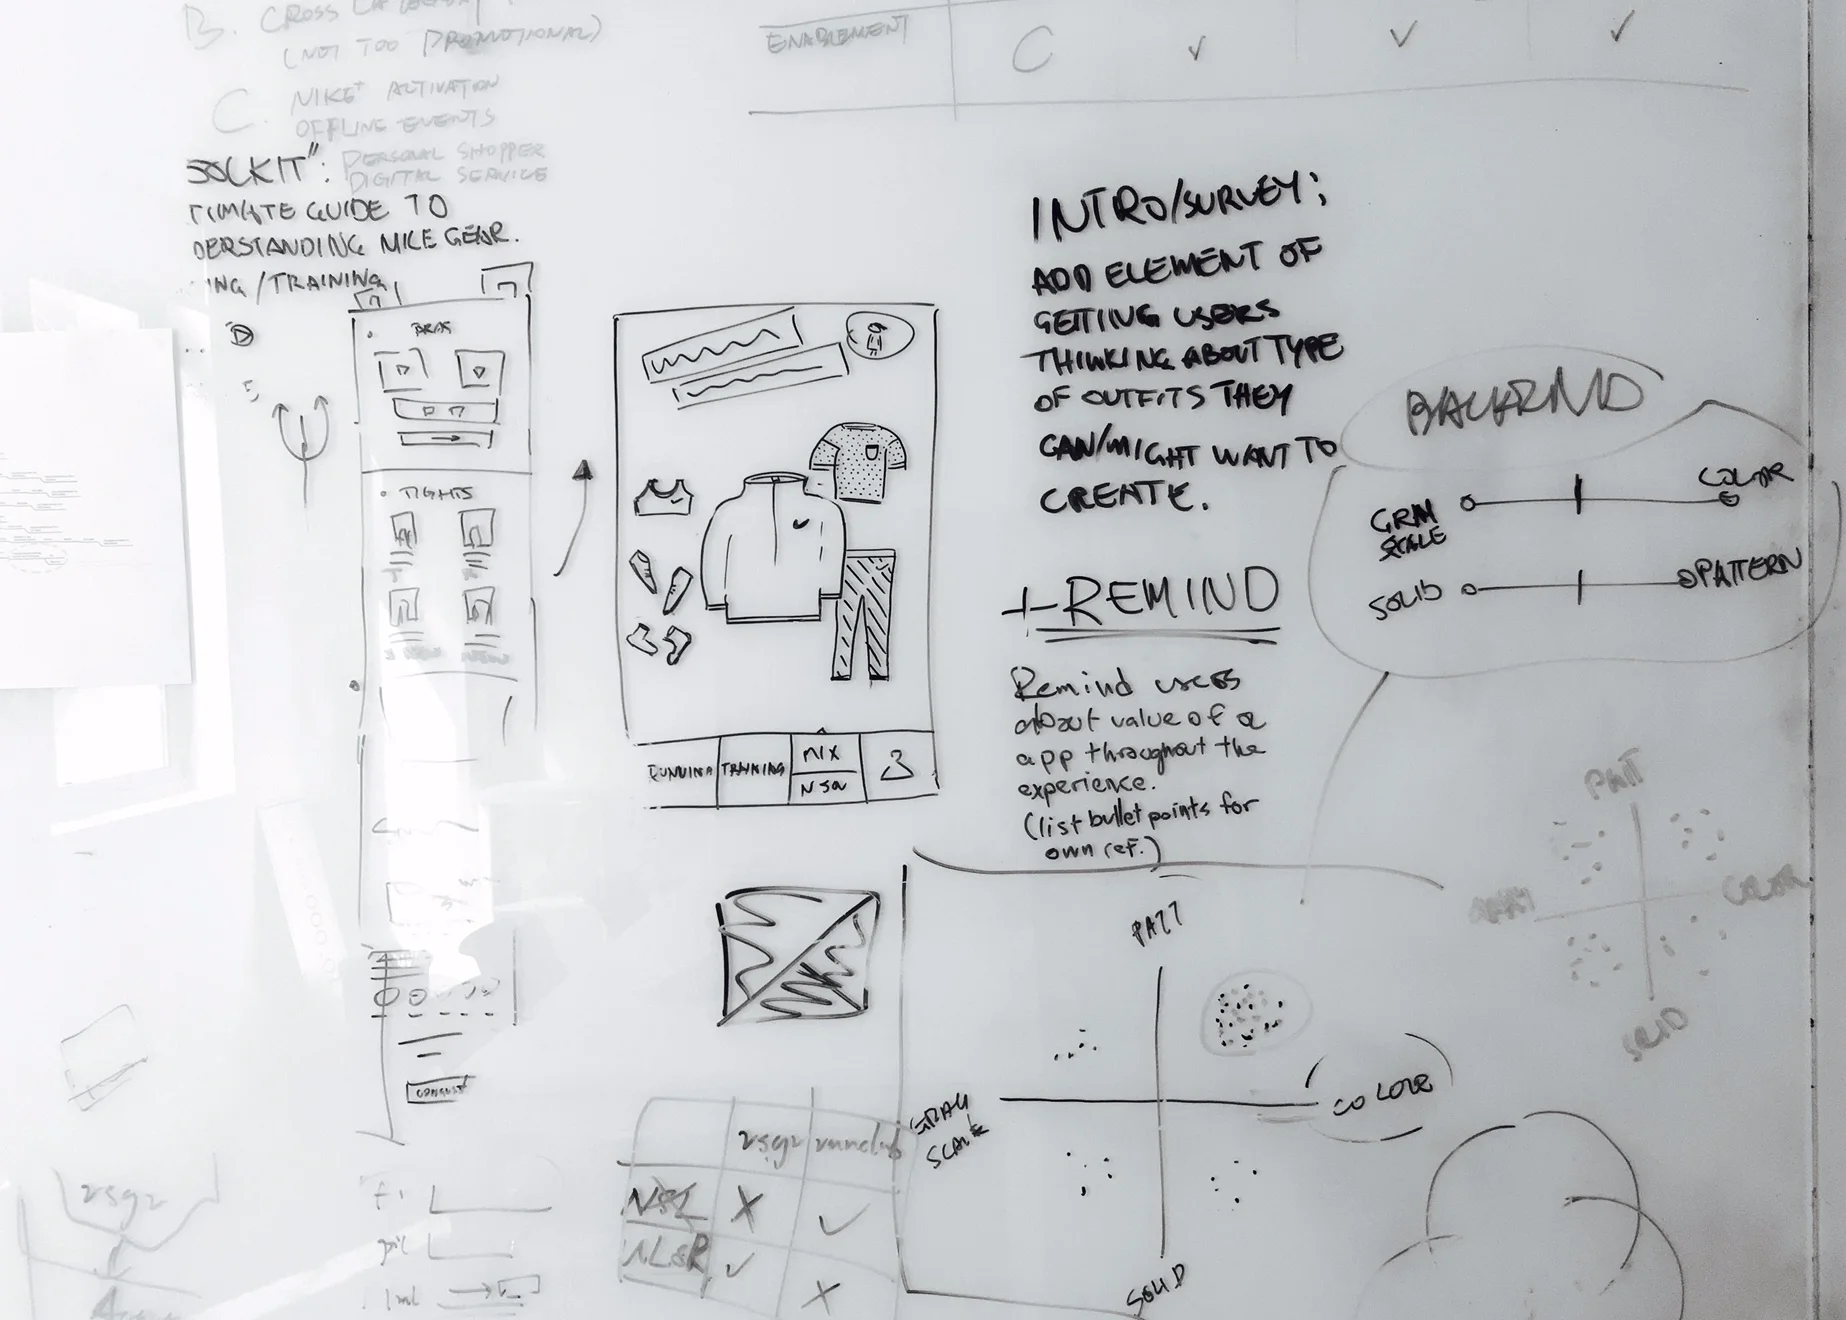 B. CROSS
(NOT TOO PROMOTIONAL)
C. NIKE+ ACTIVATION
OFFLINE EVENTS
PERSONAL SHOPPER
DIGITAL SERVICE
SOCKIT":
TIMATE GUIDE TO
DERSTANDING NIKE GEAR.
ING/TRAINING
ENABLEMENT C ✓ ✓ ✓
D
BRAS
TIGHTS
RUNNING TRAINING MIX
NSW
3
INTRO/SURVEY:
ADD ELEMENT OF
GETTING USERS
THINKING ABOUT TYPE
OF OUTFITS THEY
CAN/MIGHT WANT TO
CREATE.
+REMIND
Remind users
about value of a
app throughout the
experience.
(list bullet points for
own ref.)
BACKEND
GRAY
SCALE
COLOR
SOLID
PATTERN
PATT
GRAY
COLOR
SOLID
PATT
GRAY
SCALE
COLOR
SOLID
NSL X ✓
✓ X